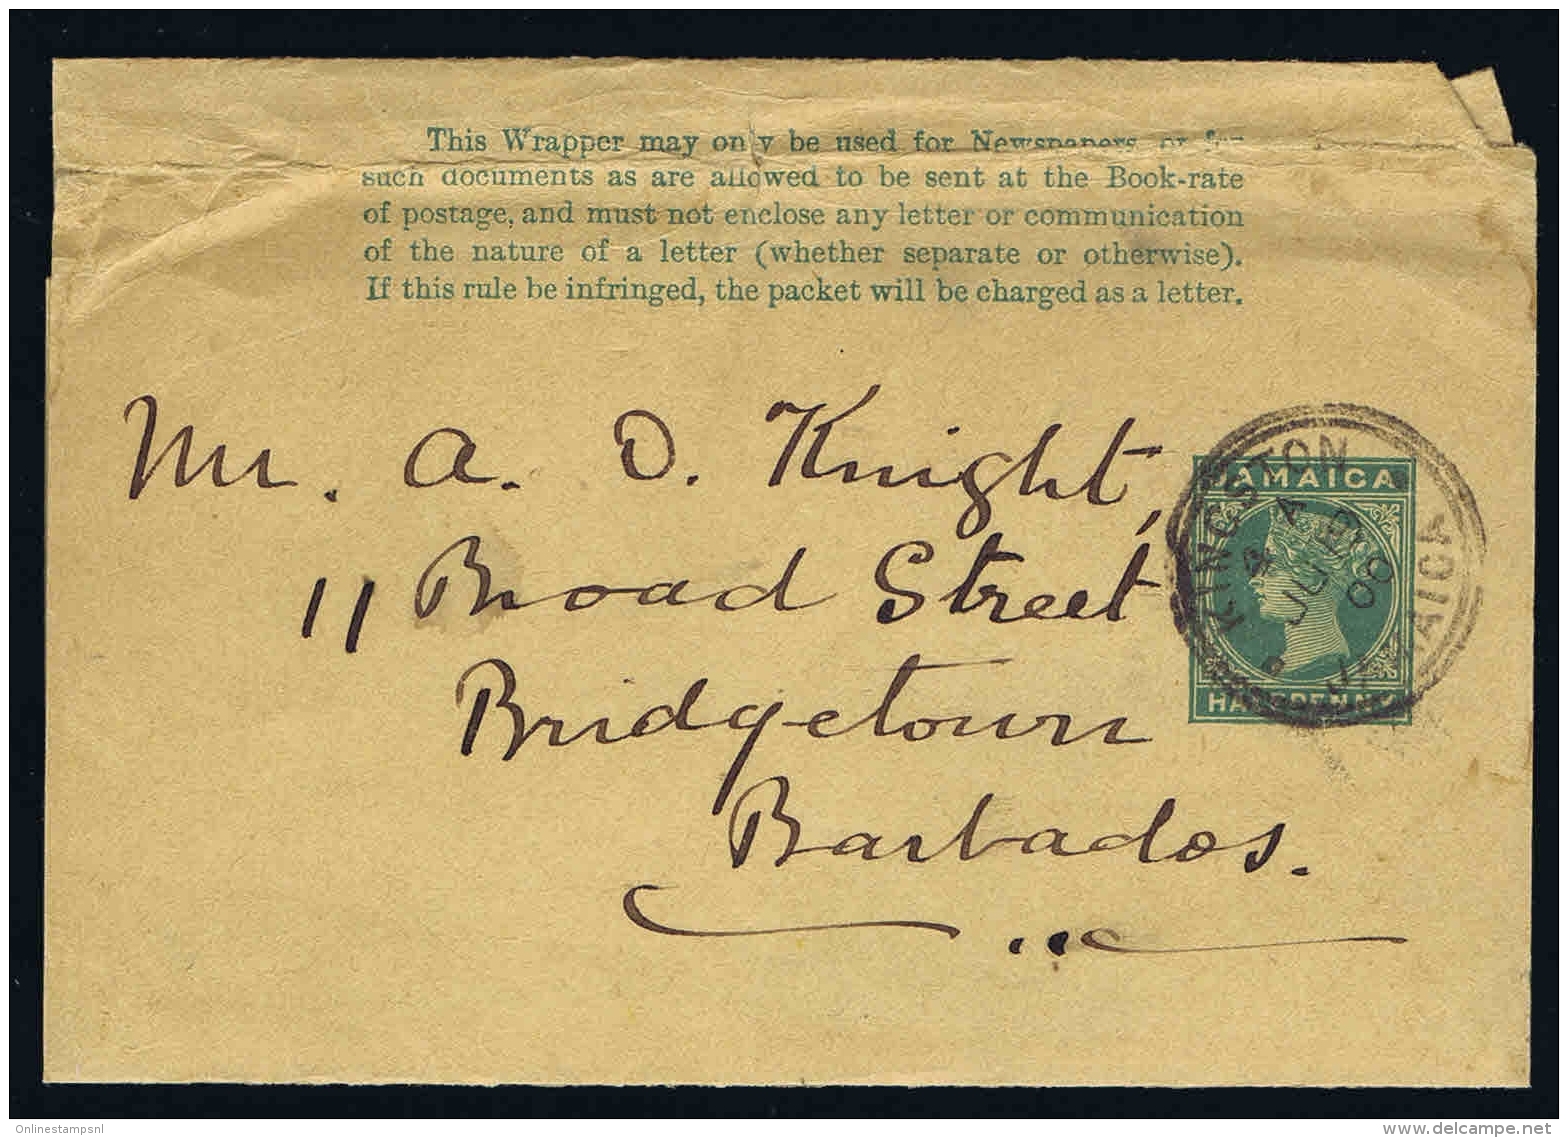 This Wrapper may only be used for Newspapers, or for
such documents as are allowed to be sent at the Book-rate
of postage, and must not enclose any letter or communication
of the nature of a letter (whether separate or otherwise).
If this rule be infringed, the packet will be charged as a letter.
Mr. A. D. Knight,
11 Broad Street
Bridgetown
Barbados.
JAMAICA
HALFPENNY
KINGSTON
JAMAICA
A
JU
06
Onlinestampsnl
delcampe.net